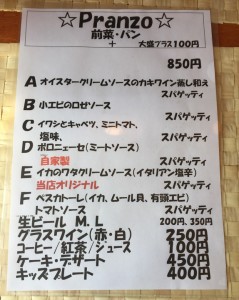 ☆Pranzo☆
前菜・パン
+ 大盛プラス100円
850円
A オイスタークリームソースのカキワイン蒸し和え
スパゲッティ
B 小エビのロゼソース
スパゲッティ
C イワシとキャベツ、ミニトマト、
塩味、 スパゲッティ
D ボロニューセ(ミートソース)
自家製 スパゲッティ
E イカのワタクリームソース(イタリアン塩辛)
当店オリジナル スパゲッティ
F ペスカトーレ(イカ、ムール貝、有頭エビ)
トマトソース スパゲッティ
生ビール M, L 200円, 350円
グラスワイン(赤・白) 250円
コーヒー/紅茶/ジュース 100円
ケーキ・デザート 450円
キッズプレート 400円